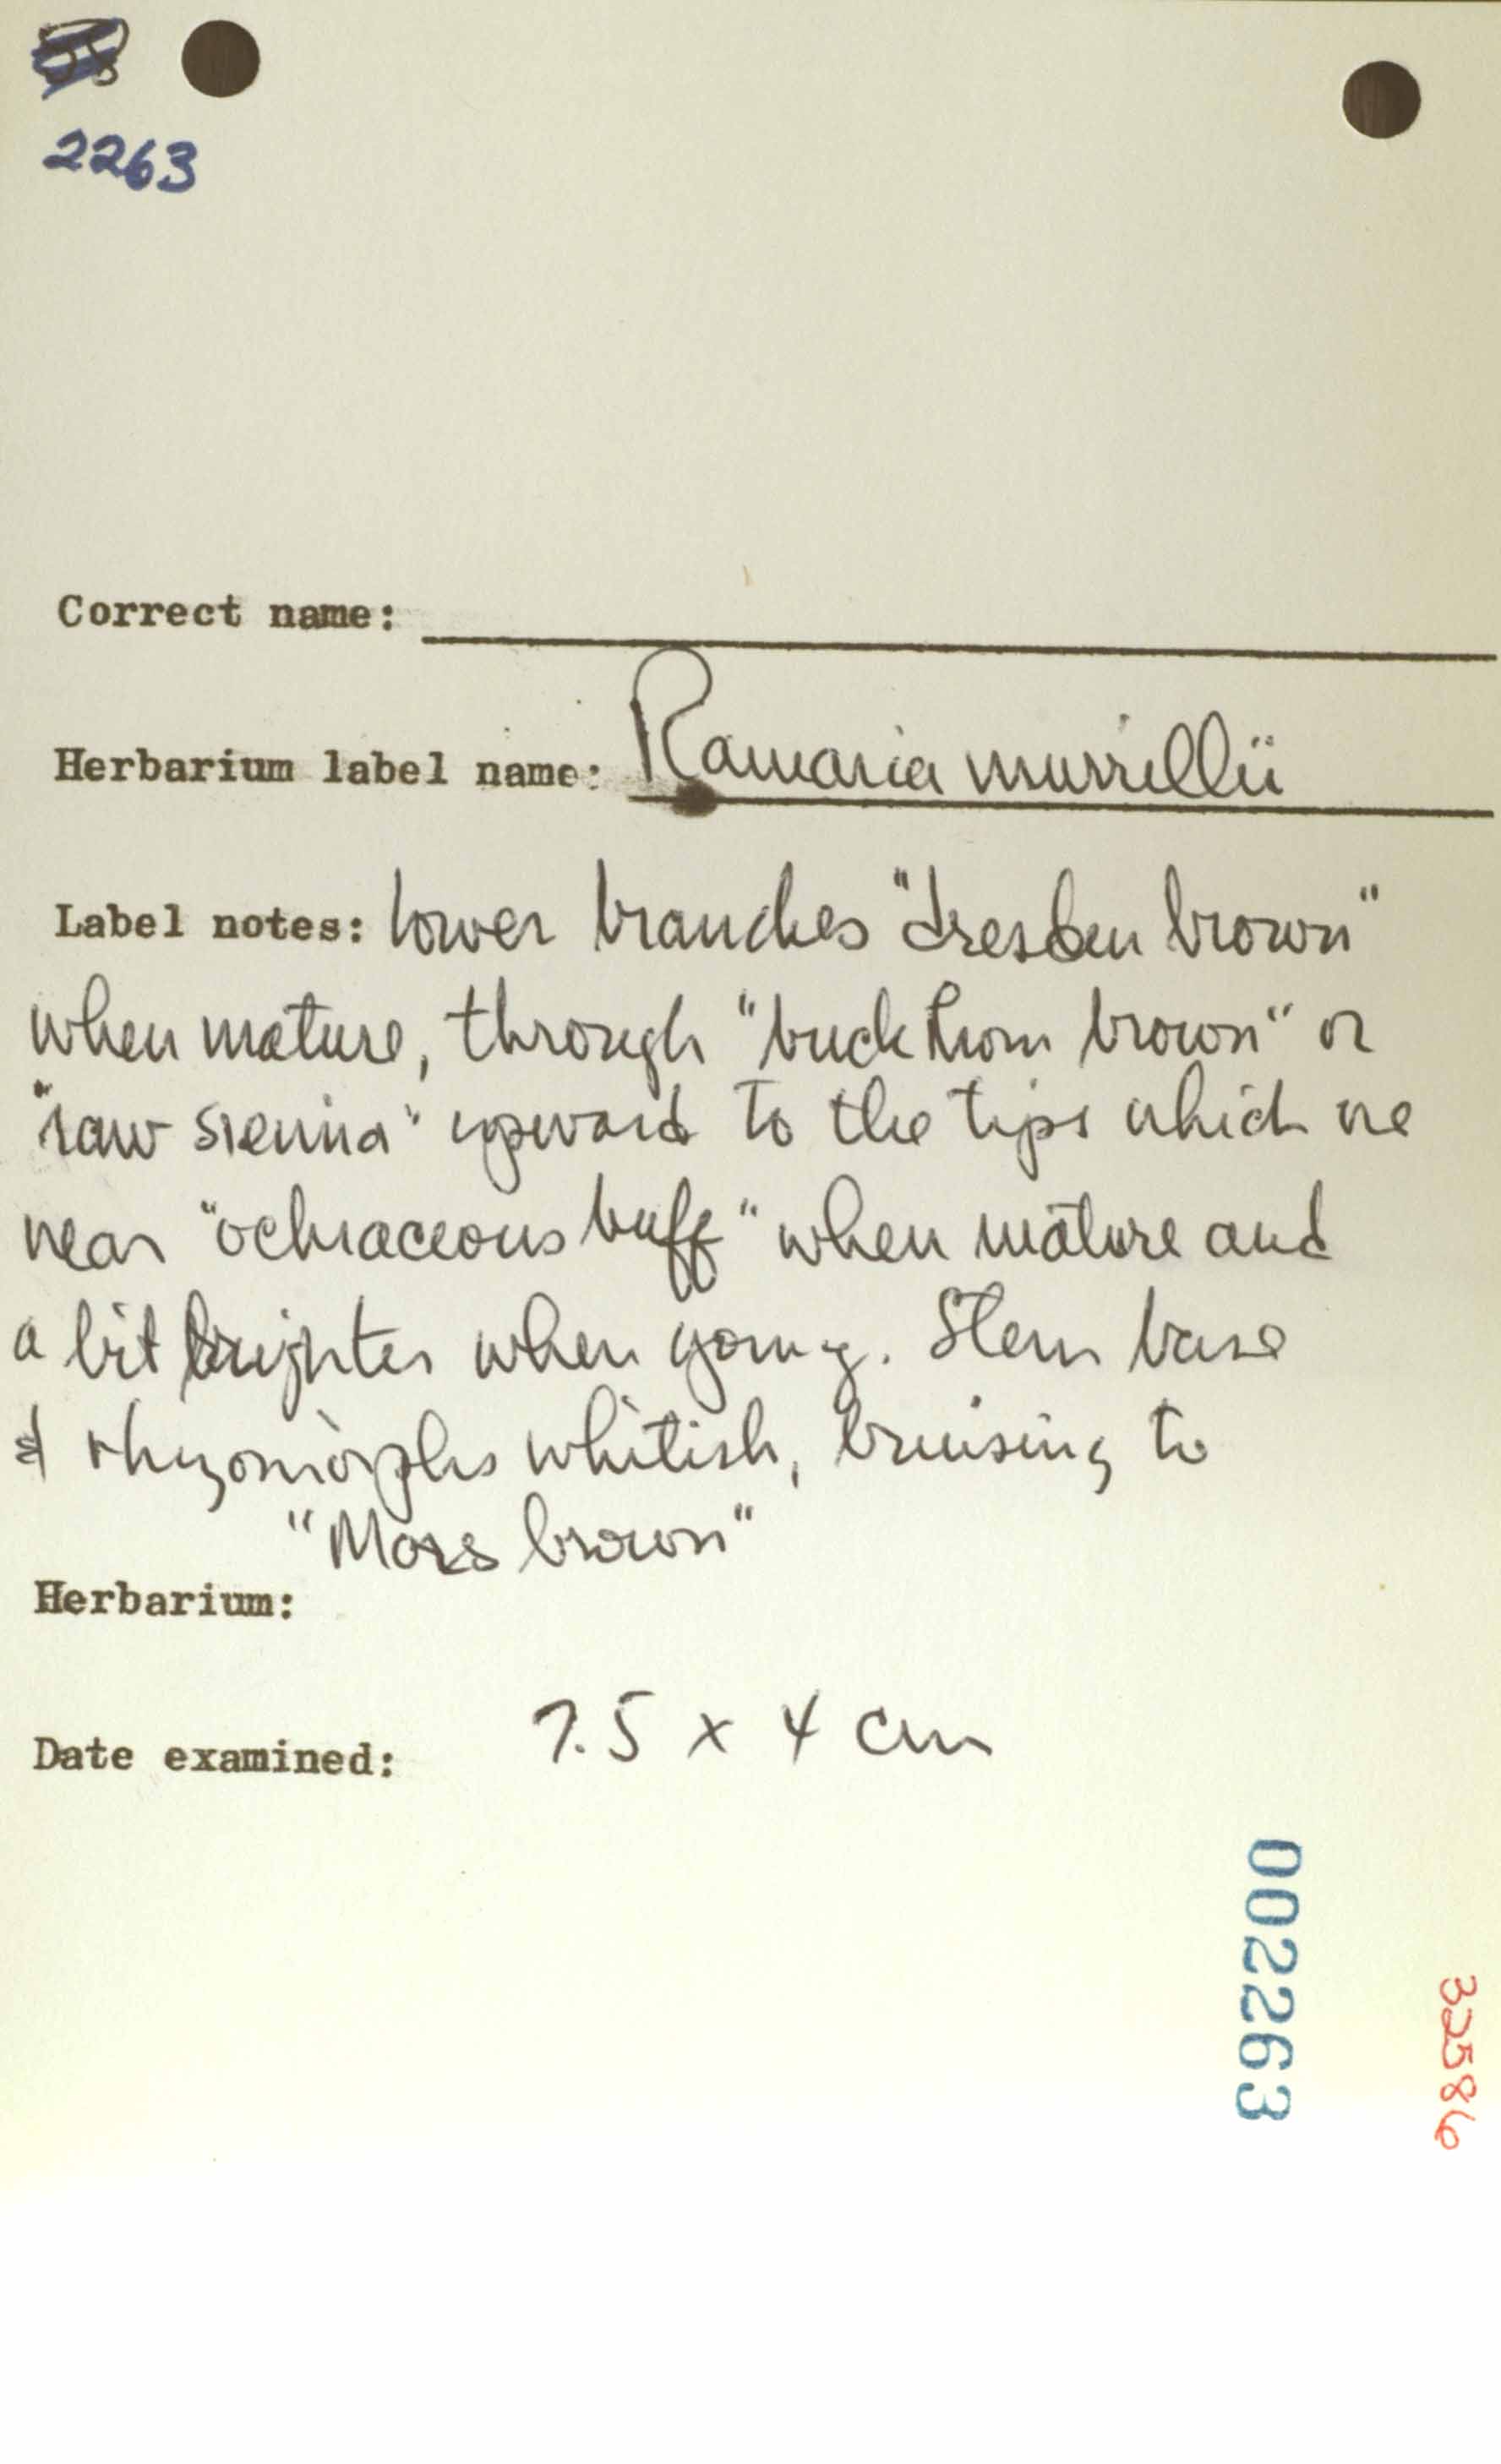 2263
Correct name:
Herbarium label name: Ramaria murrillii
Label notes: lower branches "dresden brown"
when mature, through "buckthorn brown" or
"raw sienna" upward to the tips which are
near "ochraceous buff" when mature and
a bit brighter when young. Stem base
& rhyzomorphs whitish, bruising to
"Mars brown"
Herbarium:
Date examined: 7.5 x 4 cm
002263
32586